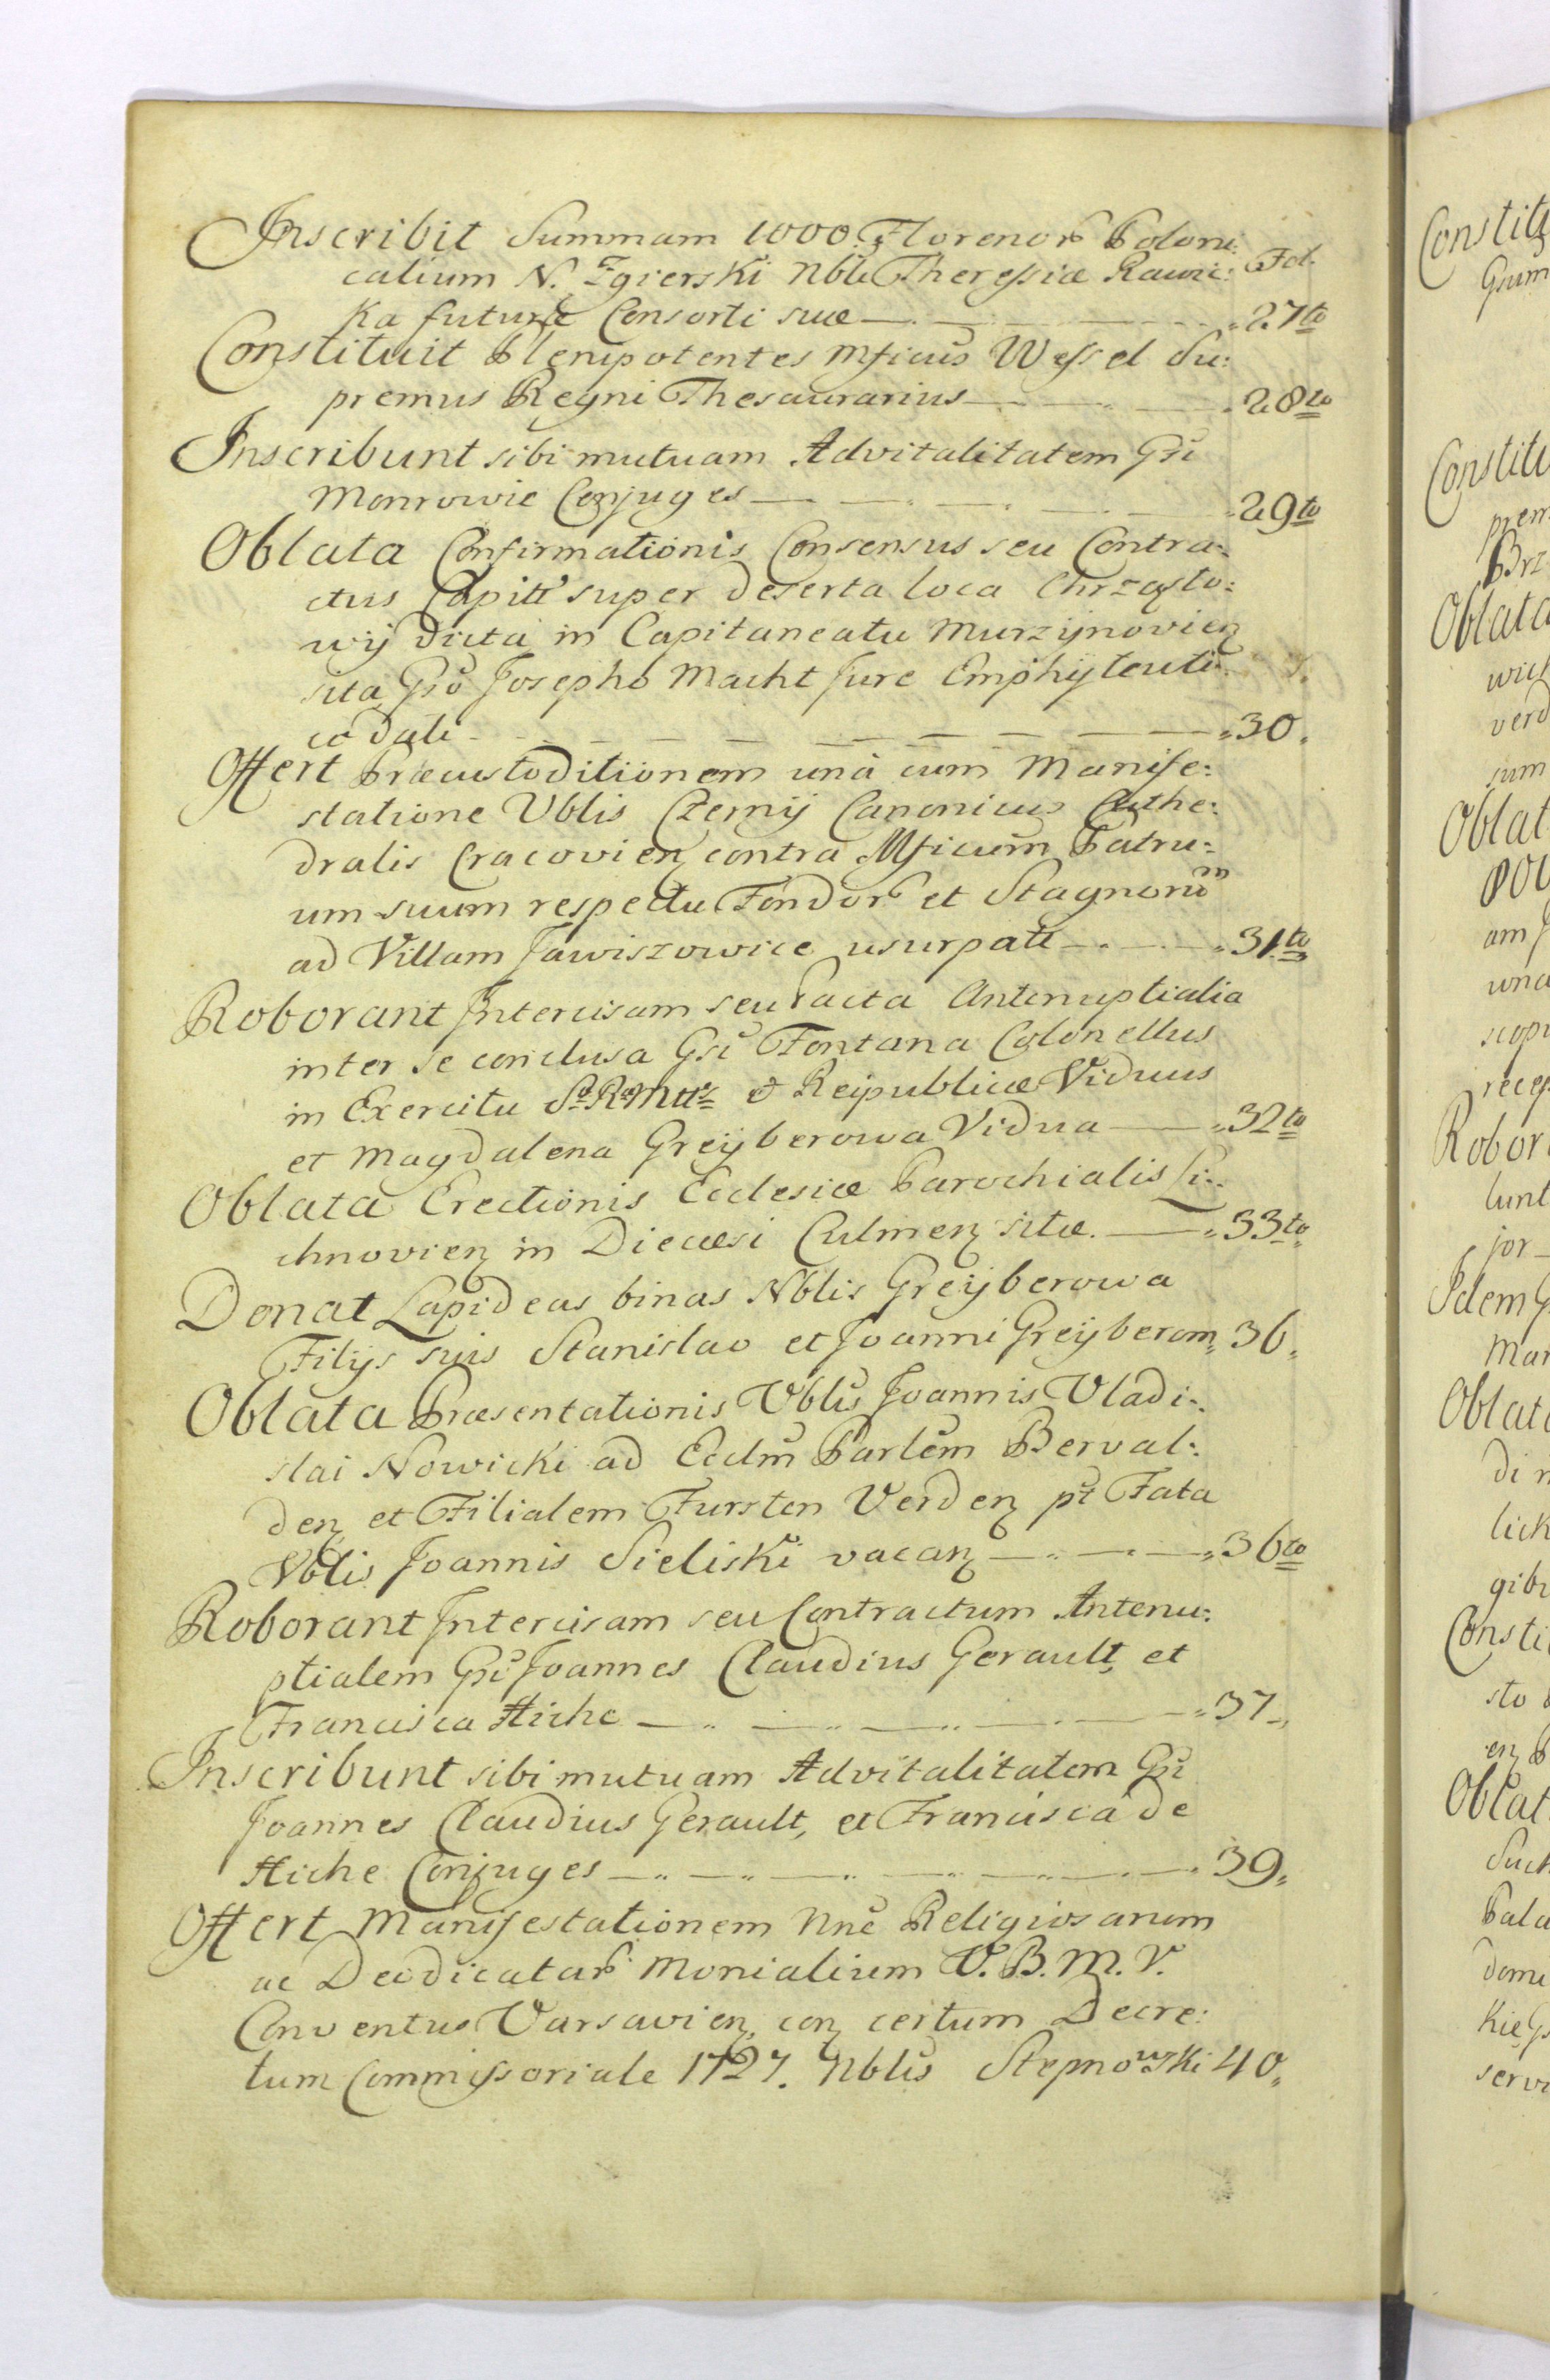 Inscribit Summam 1000. Florenor Poloni:
calium N. Zgierski Nbli Theressiæ Rawic: Fol.
ka futuræ Consorti suæ 27to
Constituit Plenipotentes Mficus Wessel Su:
premus Regni Thesaurarius 28to
Inscribunt sibi mutuam Advitalitatem Gsi
Monrowie Conjuges 29to
Oblata Confirmationis Consensus seu Contra:
ctus Capitt super deserta loca Chrząsto:
wij dicta in Capitaneatu Murzijnovien
sita Gso Josepho Macht Jure Emphijteuti
co dati 30.
Offert Præcustoditionem unà cum Manife:
statione Vblis Czernij Canonicus Cathe:
dralis Cracovien contra Mficum Patru:
um suum respectu Fondor et Stagnorum
ad Villam Jawiszowice usurpati 31to
Roborant Intercisam seu Pacta Antenuptialia
inter se conclusa Gsi Fontana Colonellus
in Exercitu S. R. Mttis et Reipublicæ Viduus
et Magdalena Greÿberowa Vidua 32to
Oblata Erectionis Ecclesiæ Parochialis Li:
chnovien in Diecæsi Culmen sitæ. 33to
Donat Lapideas binas Nblis Greÿberowa
Filijs suis Stanislao et Joanni Greÿberom 36.
Oblata Præsentationis Vblis Joannis Vladi:
slai Nowicki ad Ecclm Parlem Berval:
den et Filialem Fursten Verden pt Fata
Vblis Joannis Sieliski vacan 36to
Roborant Intercisam seu Contractum Antenu:
ptialem Gsi Joannes Claudius Gerault, et
Francisca Hiche 37
Inscribunt sibi mutuam Advitalitatem Gsi
Joannes Claudius Gerault, et Francisca de
Hiche Conjuges 39.
Offert Manifestationem Nne Religiosarum
ac Deo Dicatar Monialium V. B. M. V.
Conventus Varsavien con certum Decre:
tum Commissoriale 1727. Nblis Stepnowski 40.
Constitu
Gsum
Constitu
prem
Brz
Oblata
wich
verd
sum
Oblat
am
una
scopi
recep
Robor
lunt
jor
Idem G
Mar
Oblata
di n
lick
gibu
Consti
sto
en
Oblat
Such
Pala
domi
servi